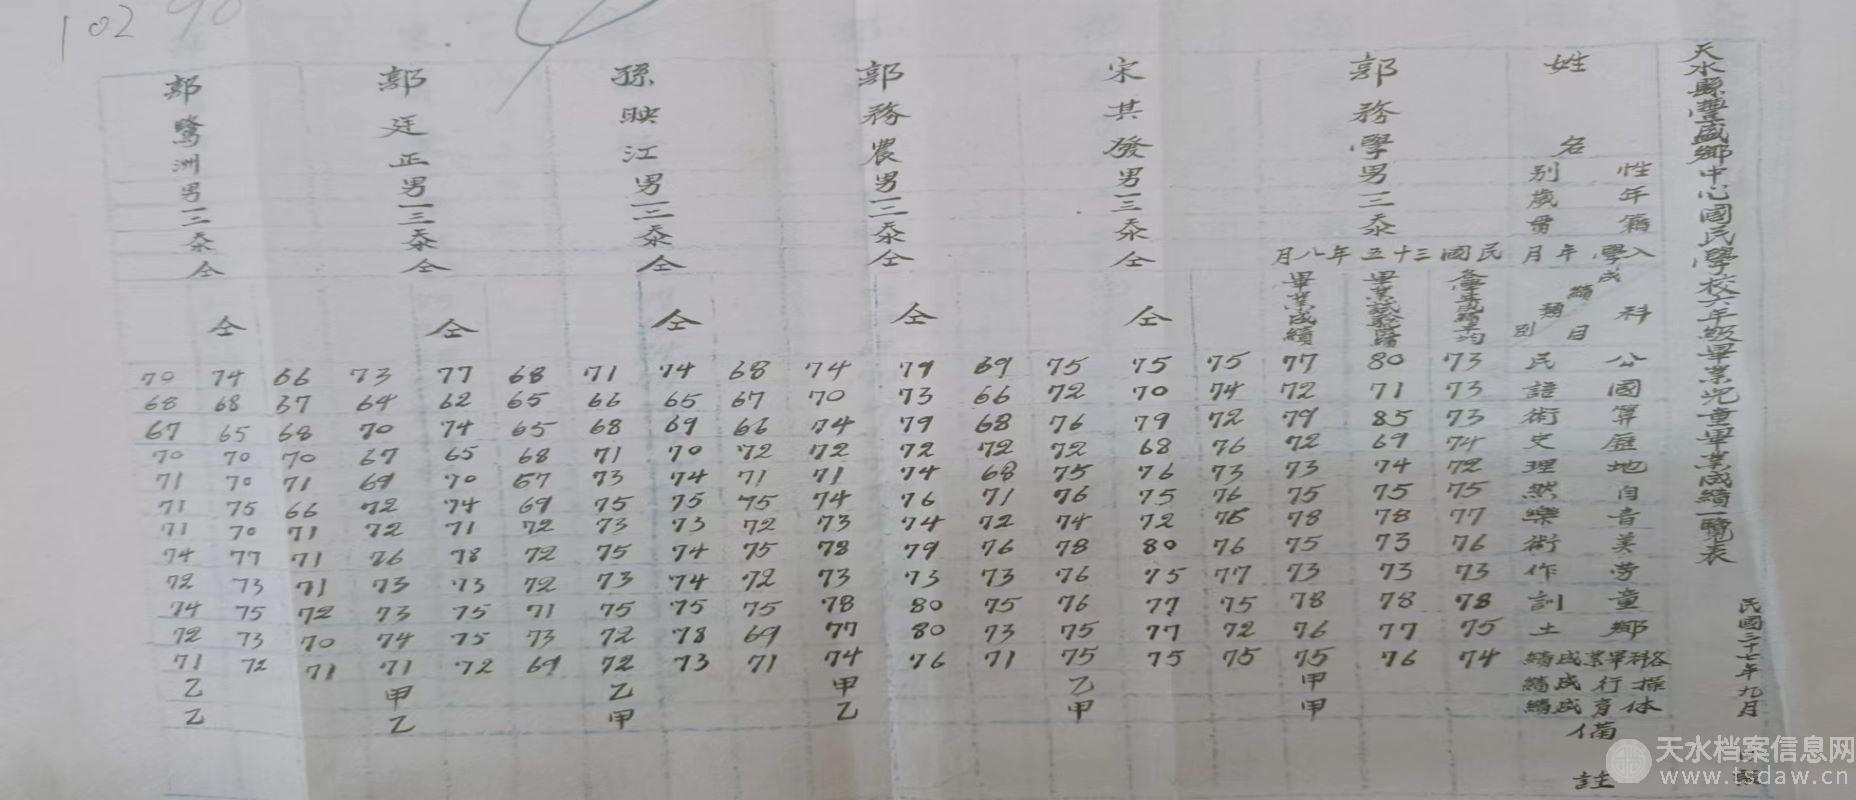 天水縣豐盛鄉中心國民學校六年級畢業兒童畢業成績一覽表
民國三十七年九月
姓名
性別
年歲
籍貫
入學年月
科目
成績
類別
公民
國語
算術
歷史
地理
自然
音樂
美術
勞作
童訓
鄉土
各科畢業成績
操行成績
体育成績
備註
郭務學 男 一三 天水
民國三十五年八月
各學年成績平均 73 73 73 74 72 75 77 76 73 78 75 74
畢業試驗成績 80 71 85 69 74 75 78 73 73 78 77 76
畢業成績 77 72 79 72 73 75 78 75 73 78 76 75 甲 甲
宋其發 男 一三 天水 仝
仝
75 74 72 76 73 76 75 76 77 75 72 75
75 70 79 68 76 75 72 80 75 77 77 75
75 72 76 72 75 76 74 78 76 76 75 75 乙 甲
郭務農 男 一二 天水 仝
仝
69 66 68 72 68 71 72 76 73 75 73 71
79 73 79 72 74 76 74 79 73 80 80 76
74 70 74 72 71 74 73 78 73 78 77 74 甲 乙
孫映江 男 一二 天水 仝
仝
68 67 66 72 71 75 72 75 72 75 69 71
74 65 69 70 74 75 73 74 74 75 78 73
71 66 68 71 73 75 73 75 73 75 72 72 乙 甲
郭廷正 男 一三 天水 仝
仝
68 65 65 68 67 69 72 72 72 71 73 69
77 62 74 65 70 74 71 78 73 75 75 72
73 64 70 67 69 72 72 76 73 73 74 71 甲 乙
郭鷺洲 男 一三 天水 仝
仝
66 67 68 70 71 66 71 71 71 72 70 71
74 68 65 70 70 75 70 77 73 75 73 72
70 68 67 70 71 71 71 74 72 74 72 71 乙 乙
102 90
天水档案信息网
www.tsdaw.cn